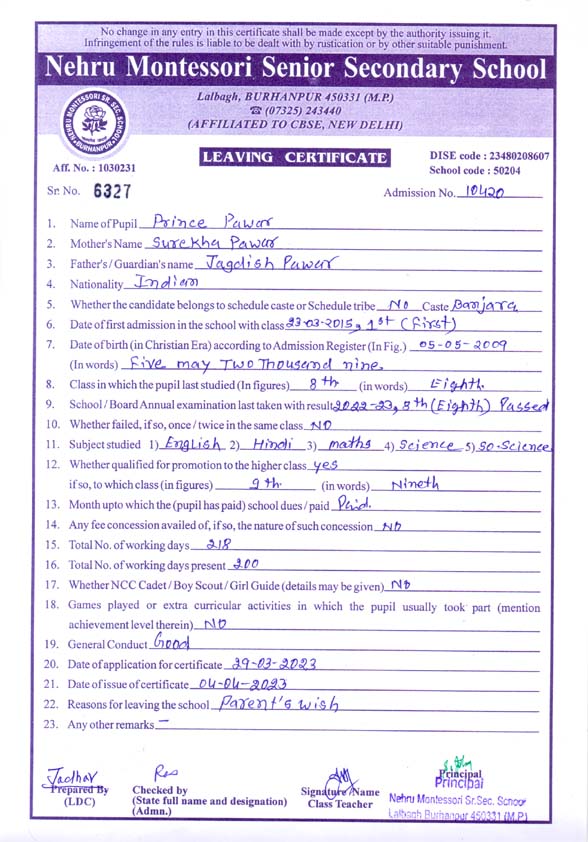 No change in any entry in this certificate shall be made except by the authority issuing it.
Infringement of the rules is liable to be dealt with by rustication or by other suitable punishment.
Nehru Montessori Senior Secondary School
Lalbagh, BURHANPUR 450331 (M.P.)
☎ (07325) 243440
(AFFILIATED TO CBSE, NEW DELHI)
NEHRU MONTESSORI SR. SEC. SCHOOL
BURHANPUR
LEAVING CERTIFICATE
DISE code : 23480208607
Aff. No. : 1030231
School code : 50204
Sr. No. 6327
Admission No. 10420
1. Name of Pupil Prince Pawar
2. Mother's Name Surekha Pawar
3. Father's / Guardian's name Jagdish Pawar
4. Nationality Indian
5. Whether the candidate belongs to schedule caste or Schedule tribe No Caste Banjara
6. Date of first admission in the school with class 23-03-2015, 1st (First)
7. Date of birth (in Christian Era) according to Admission Register (In Fig.) 05-05-2009
(In words) Five may Two Thousand nine
8. Class in which the pupil last studied (In figures) 8th (in words) Eighth
9. School / Board Annual examination last taken with result 2022-23, 8th (Eighth) Passed
10. Whether failed, if so, once / twice in the same class NO
11. Subject studied 1) English 2) Hindi 3) maths 4) Science 5) SO-Science
12. Whether qualified for promotion to the higher class yes
if so, to which class (in figures) 9th (in words) Nineth
13. Month upto which the (pupil has paid) school dues / paid Paid.
14. Any fee concession availed of, if so, the nature of such concession NO
15. Total No. of working days 218
16. Total No. of working days present 200
17. Whether NCC Cadet / Boy Scout / Girl Guide (details may be given) NO
18. Games played or extra curricular activities in which the pupil usually took part (mention
achievement level therein) NO
19. General Conduct Good
20. Date of application for certificate 29-03-2023
21. Date of issue of certificate 04-04-2023
22. Reasons for leaving the school Parent's wish
23. Any other remarks —
Jadhav
Prepared By
(LDC)
Checked by
(State full name and designation)
(Admn.)
Signature / Name
Class Teacher
Principal
Principal
Nehru Montessori Sr. Sec. School
Lalbagh Burhanpur 450331 (M.P.)